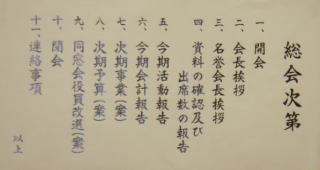 総会次第
一、開会
二、会長挨拶
三、名誉会長挨拶
四、資料の確認及び
出席数の報告
五、今期活動報告
六、今期会計報告
七、次期事業(案)
八、次期予算(案)
九、同窓会役員改選(案)
十、閉会
十一、連絡事項
以上